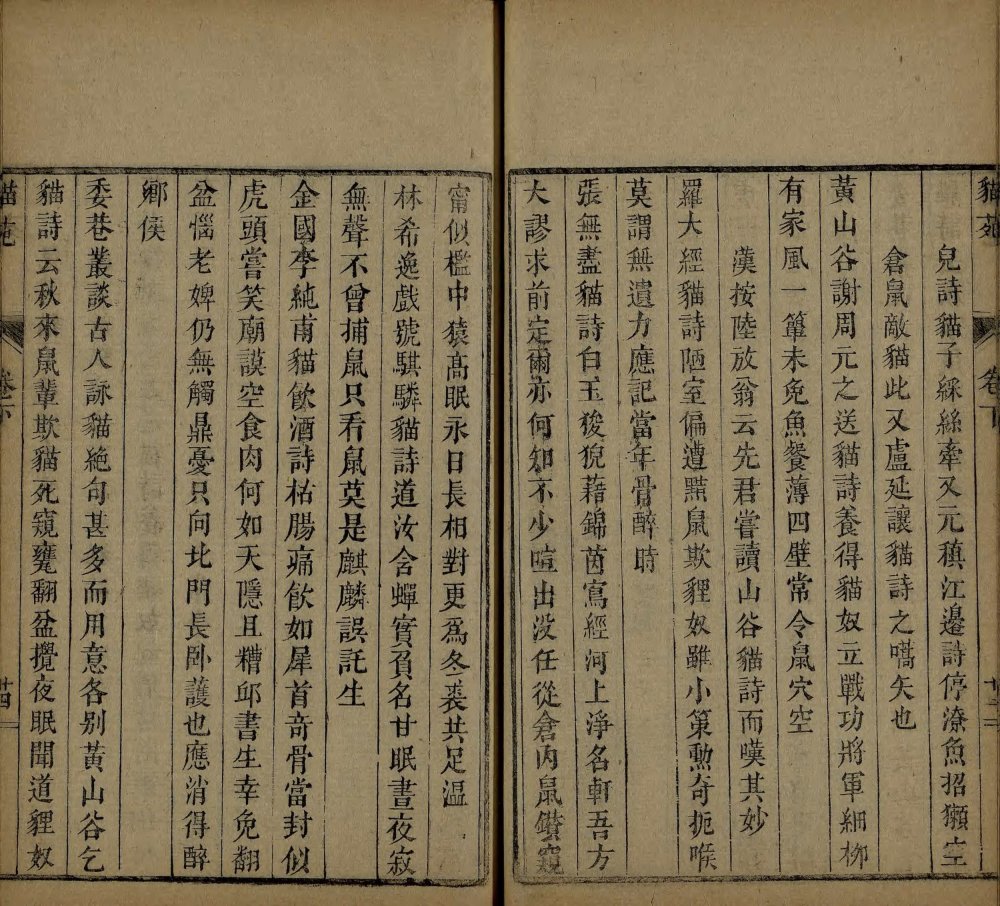 貓苑
卷下
兒詩貓子綵絲牽又元稹江邊詩停潦魚招獺空
倉鼠敵貓此又盧延讓貓詩之嚆矢也
黃山谷謝周元之送貓詩養得貓奴立戰功將軍細柳
有家風一簞未免魚餐薄四壁常令鼠穴空
漢按陸放翁云先君嘗讀山谷貓詩而嘆其妙
羅大經貓詩陋室偏遭黠鼠欺貍奴雖小策勲奇扼喉
莫謂無遺力應記當年骨醉時
張無盡貓詩白玉狻猊藉錦茵寫經河上淨名軒吾方
大謬求前定爾亦何知不少喧出没任從倉內鼠鑽窺
甯似檻中猿高眠永日長相對更爲冬裘共足溫
林希逸戲號騏驎貓詩道汝含蟬實負名甘眠晝夜寂
無聲不曾捕鼠只看鼠莫是麒麟誤託生
金國李純甫貓飲酒詩枯腸痛飲如犀首奇骨當封似
虎頭嘗笑廟謨空食肉何如天隱且糟邱書生幸免翻
盆惱老婢仍無觸鼎憂只向北門長卧護也應消得醉
鄉侯
委巷叢談古人詠貓絶句甚多而用意各别黃山谷乞
貓詩云秋來鼠輩欺貓死窺甕翻盆攪夜眠聞道貍奴
貓苑
卷下
廿四